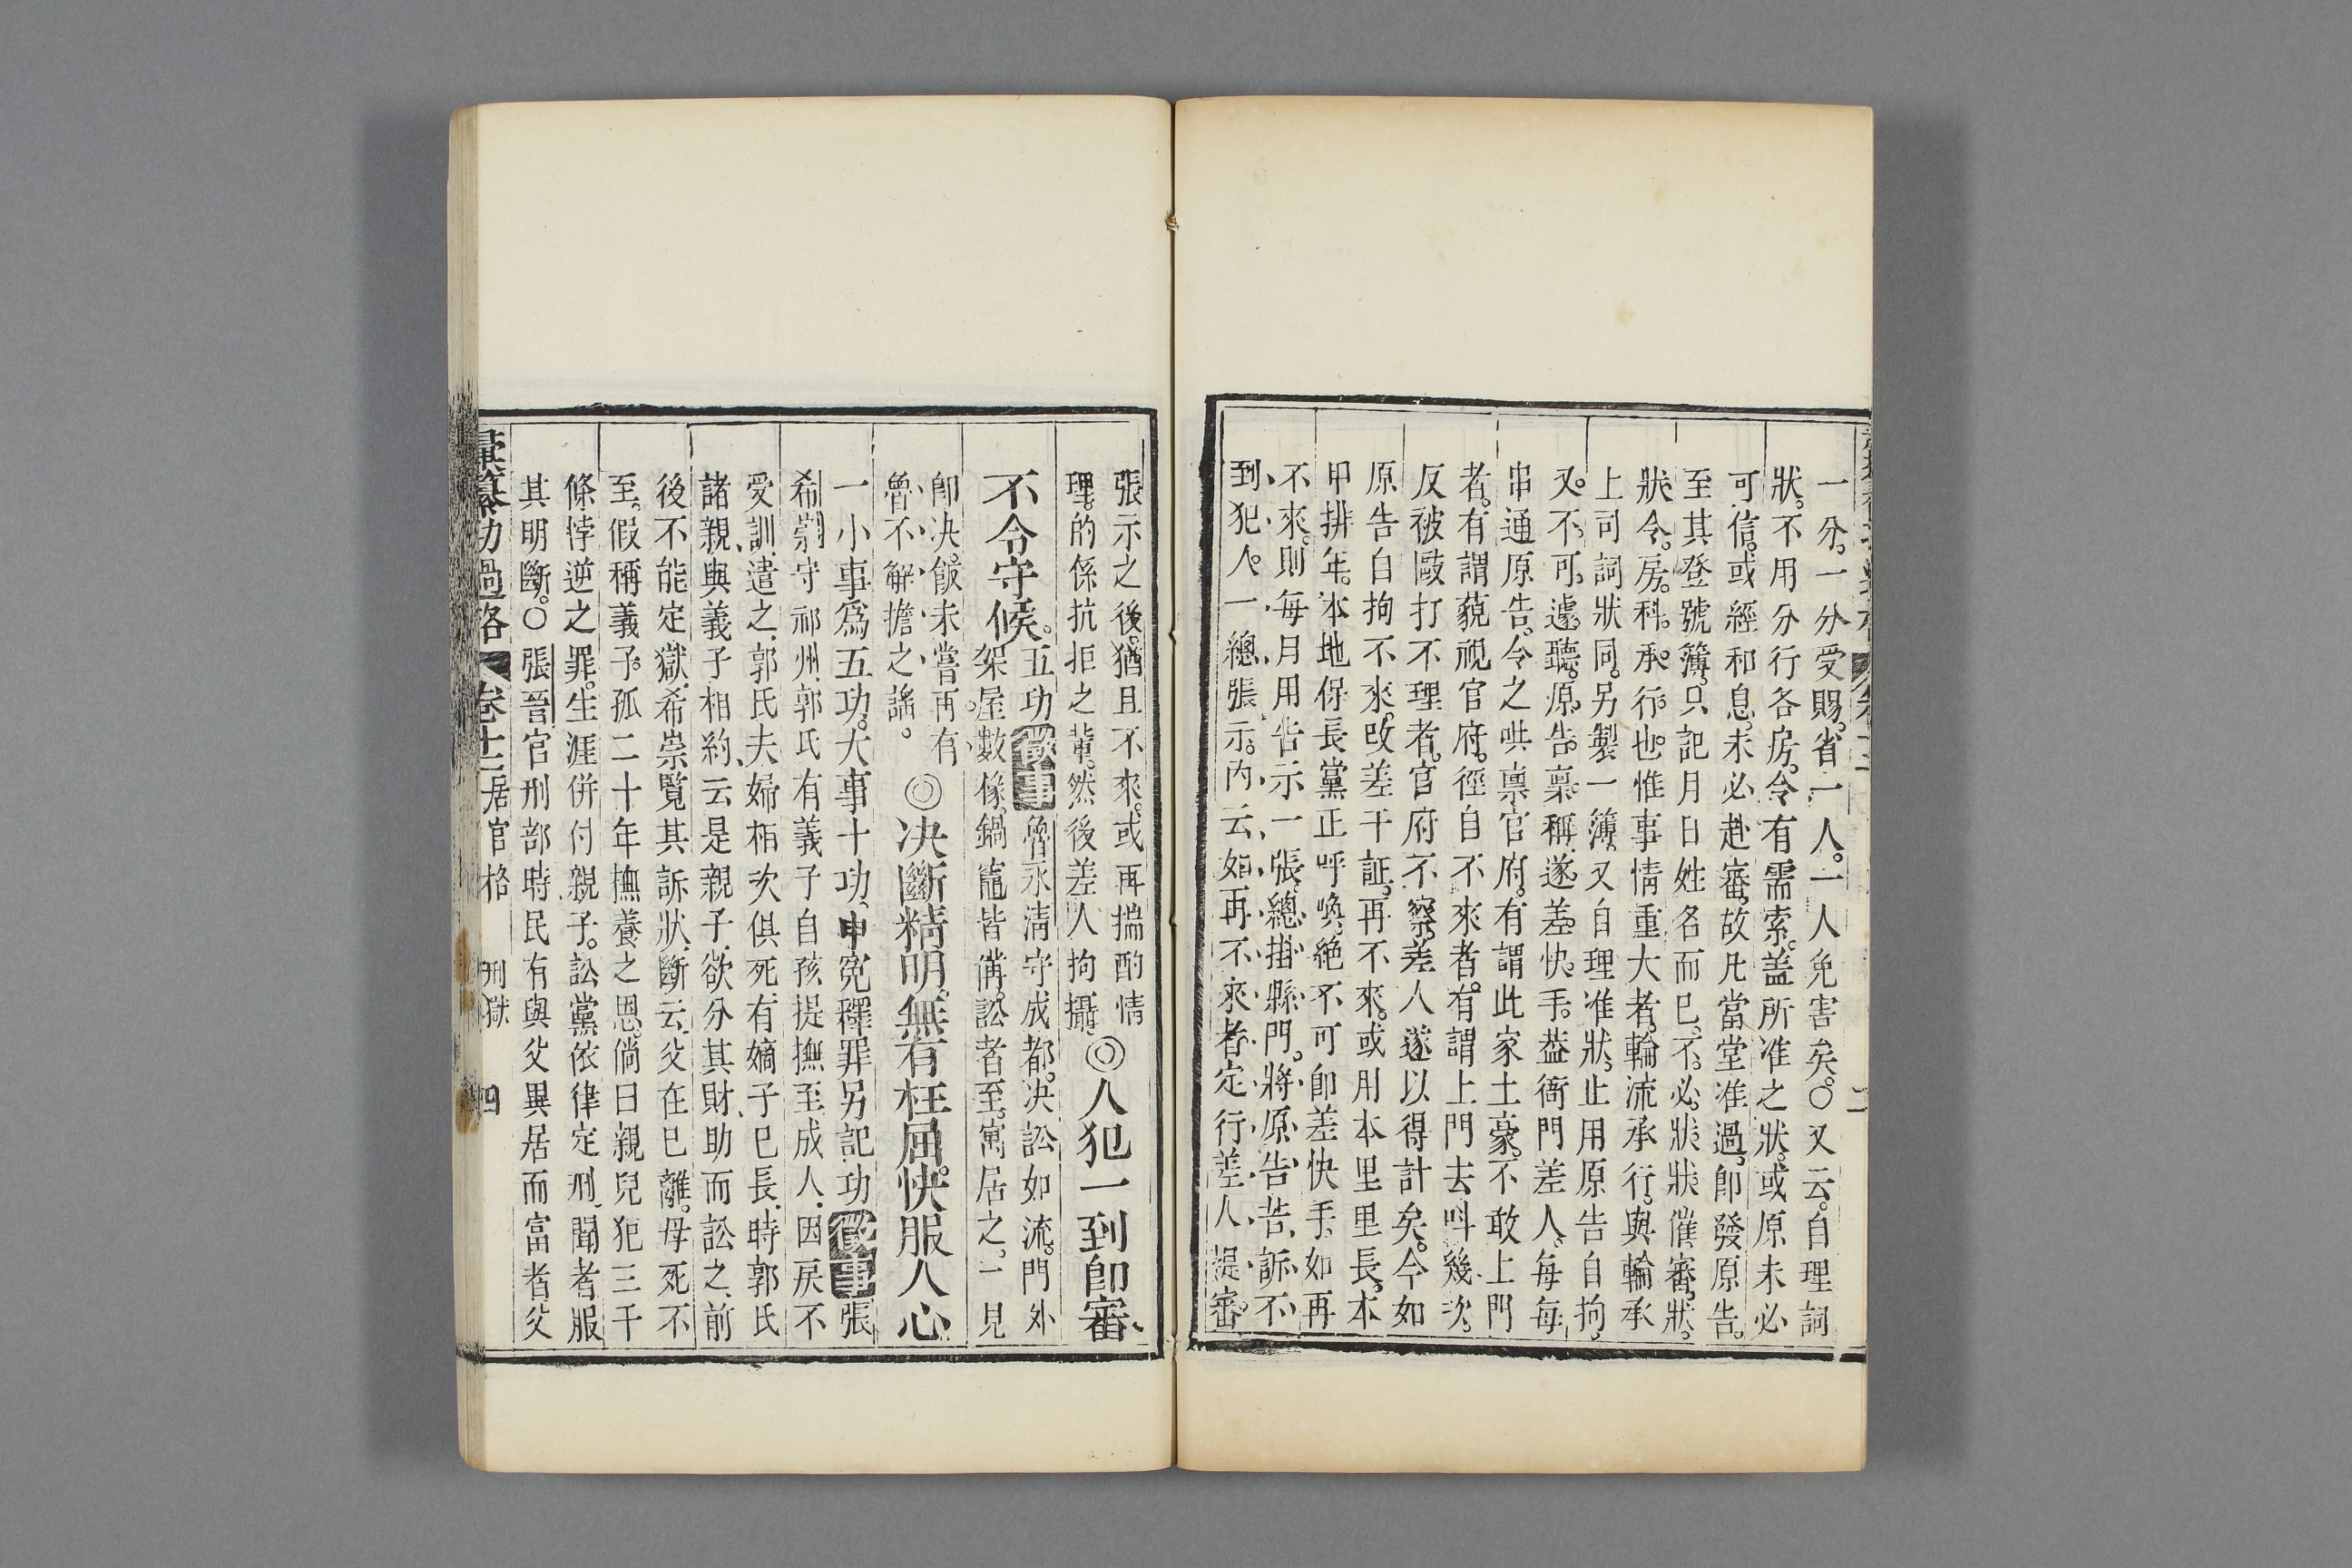 一分。一分受賜。省一人。一人免害矣。○又云。自理詞
狀。不用分行各房。令有需索。蓋所准之狀。或原未必
可信。或經和息。未必赴審。故凡當堂准過。即發原告。
至其登號簿。只記月日姓名而已。不必狀狀催審。狀
狀令房科承行也。惟事情重大者。輪流承行。與輪承
上司詞狀同。另製一簿。又自理准狀。止用原告自拘。
又不可遽聽原告稟稱。遂差快手。葢衙門差人。每每
串通原告。令之哄稟官府。有謂此家土豪。不敢上門
者。有謂藐視官府。徑自不來者。有謂上門去呌幾次。
反被毆打不理者。官府不察。差人遂以得計矣。今如
原告自拘不來。改差干証。再不來。或用本里里長。本
甲排年。本地保長黨正呼喚。絕不可即差快手。如再
不來。則每月用告示一張。總掛縣門。將原告告訴不
到犯人。一總張示。內云如再不來者。定行差人提審。
張示之後。猶且不來。或再揣酌情
理。的係抗拒之輩。然後差人拘攝。◎人犯一到卽審、
不令守候。五功徵事魯永清守成都。決訟如流。門外
架屋數椽。鍋竈皆備。訟者至。寓居之。一見
卽決。飯未嘗再。有
魯不解擔之謠。◎决斷精明。無有枉屈。快服人心
一小事爲五功。大事十功、申寃釋罪另記功徵事張
希崇守祁州。郭氏有義子自孩提撫至成人。因戾不
受訓。遣之。郭氏夫婦相次俱死。有嫡子已長。時郭氏
諸親與義子相約。云是親子。欲分其財。助而訟之。前
後不能定獄。希崇覽其訴狀。斷云。父在已離。母死不
至。假稱義子。孤二十年撫養之恩。倘曰親兒。犯三千
條悖逆之罪。生涯併付親子。訟黨依律定刑。聞者服
其明斷。○張晉官刑部時。民有與父異居而富者。父
彙纂功過格 卷十二 居官格 刑獄 四